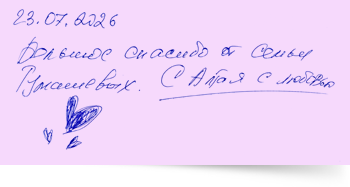 23.07.2026
Большое спасибо от семьи
С Алтая с любовью